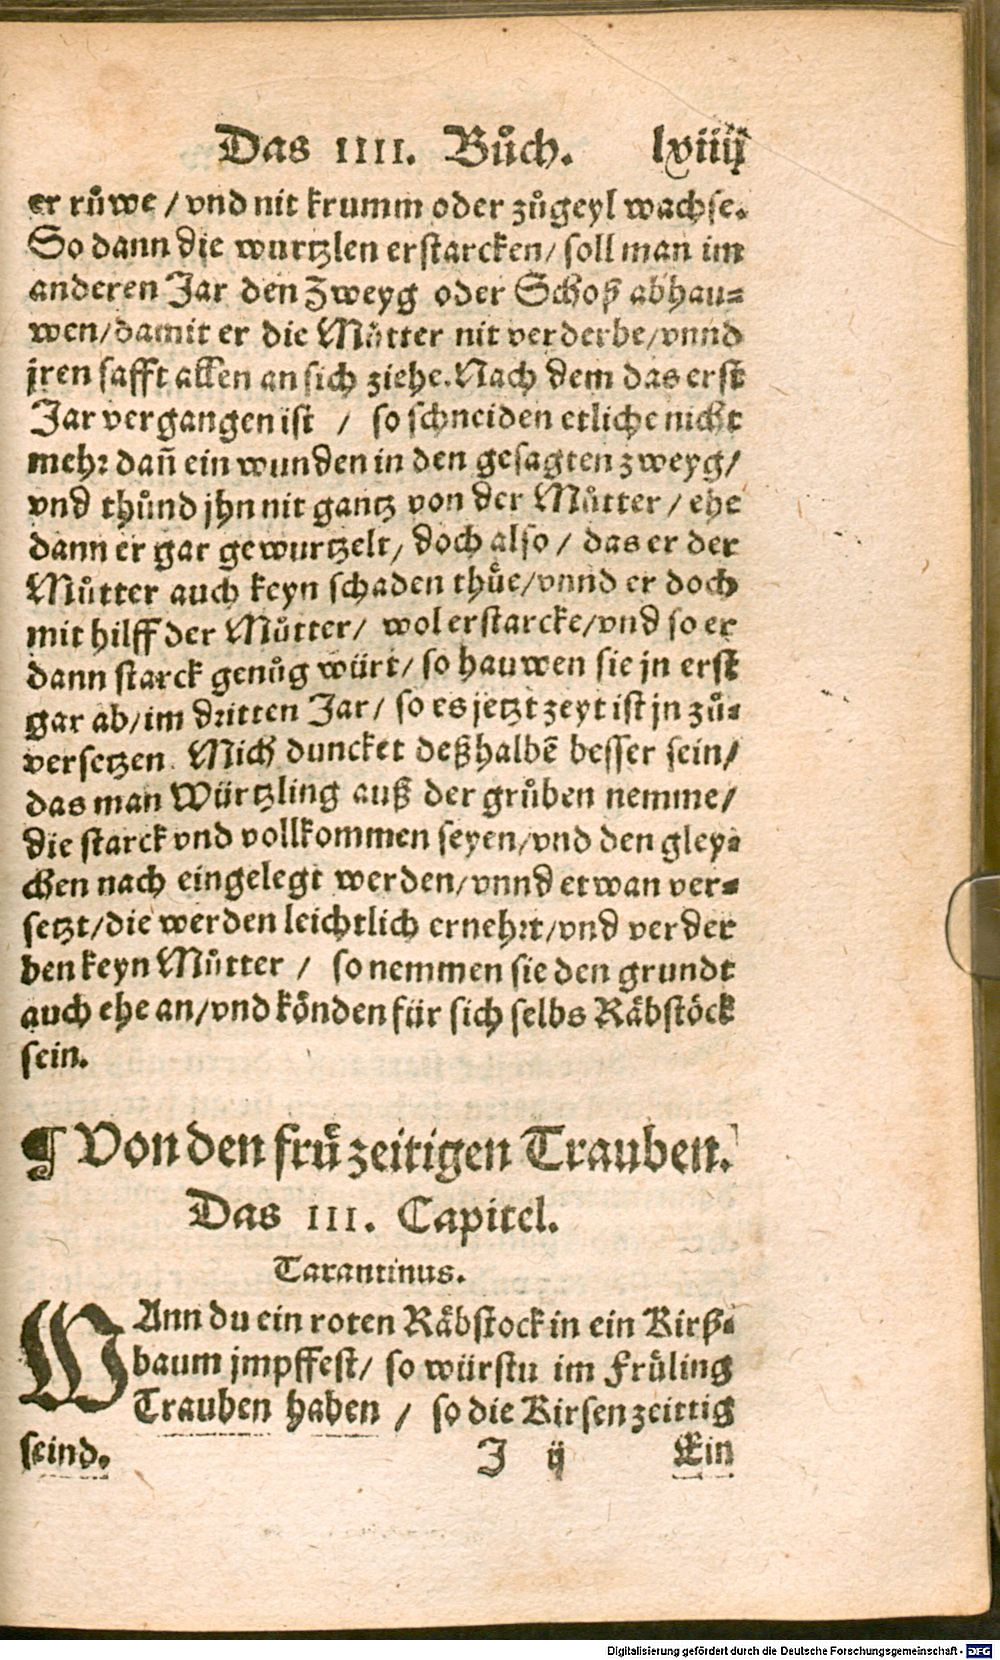 Das IIII. Bůch. lxiiij
er růwe / vnd nit krumm oder zůgeyl wachse.
So dann die wurtzlen erstarcken / soll man im
anderen Jar den Zweyg oder Schoß abhau⸗
wen / damit er die Můtter nit verderbe / vnnd
jren safft allen an sich ziehe. Nach dem das erst
Jar vergangen ist / so schneiden etliche nicht
mehr dañ ein wunden in den gesagten zweyg /
vnd thůnd jhn nit gantz von der Můtter / ehe
dann er gar gewurtzelt / doch also / das er der
Můtter auch keyn schaden thůe / vnnd er doch
mit hilff der Můtter / wol erstarcke / vnd so er
dann starck genůg würt / so hauwen sie jn erst
gar ab / im dritten Jar / so es jetzt zeyt ist jn zů⸗
versetzen. Mich duncket deßhalbẽ besser sein /
das man Würtzling auß der grůben nemme /
die starck vnd vollkommen seyen / vnd den gley⸗
chen nach eingelegt werden / vnnd etwan ver⸗
setzt / die werden leichtlich ernehrt / vnd verder
ben keyn Můtter / so nemmen sie den grundt
auch ehe an / vnd könden für sich selbs Räbstöck
sein.
¶ Von den frůzeitigen Trauben.
Das III. Capitel.
Tarantinus.
WAnn du ein roten Räbstock in ein Kirß⸗
baum jmpffest / so würstu im Früling
Trauben haben / so die Kirsen zeittig
seind. J ij Ein
Digitalisierung gefördert durch die Deutsche Forschungsgemeinschaft - DFG